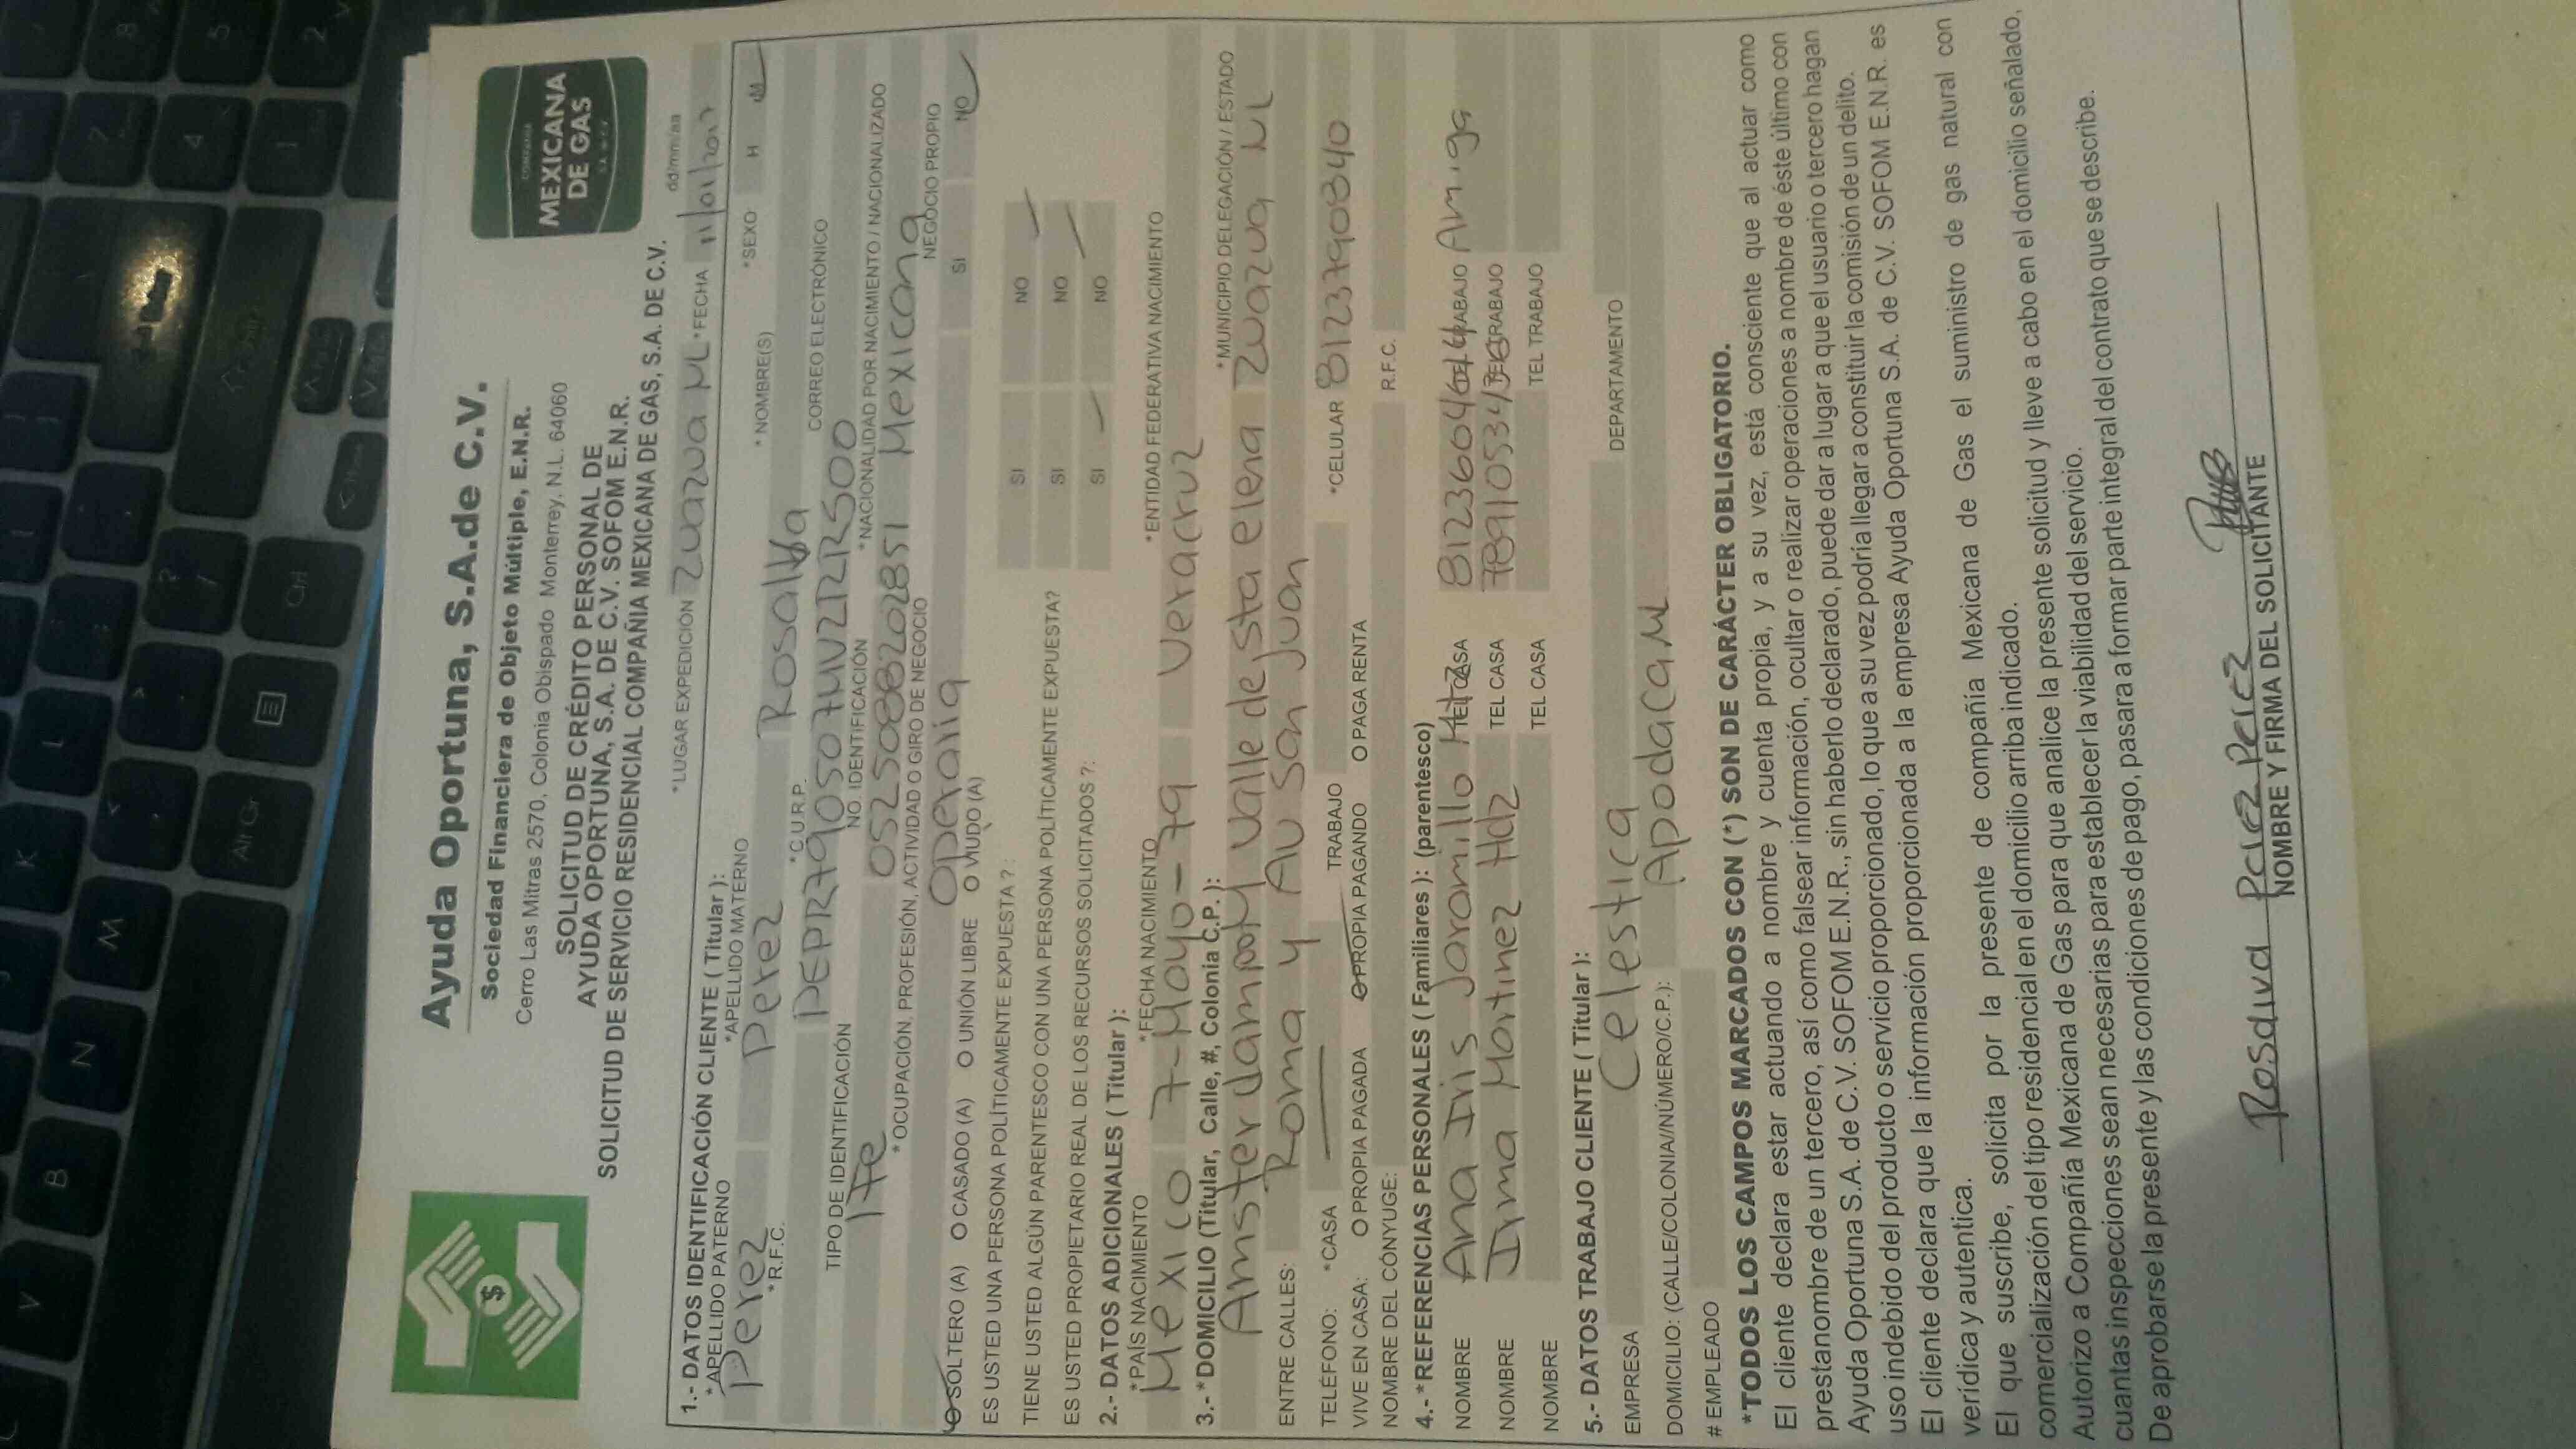 Ayuda Oportuna, S.A.de C.V.
Sociedad Financiera de Objeto Múltiple, E.N.R.
Cerro Las Mitras 2570, Colonia Obispado Monterrey, N.L. 64060
SOLICITUD DE CRÉDITO PERSONAL DE
AYUDA OPORTUNA, S.A. DE C.V. SOFOM E.N.R.
SOLICITUD DE SERVICIO RESIDENCIAL COMPAÑIA MEXICANA DE GAS, S.A. DE C.V.
COMPAÑIA
MEXICANA
DE GAS
S.A. DE C.V.
$
dd/mm/aa
*LUGAR EXPEDICIÓN Zuazua NL *FECHA 11/01/2017
1.- DATOS IDENTIFICACIÓN CLIENTE ( Titular ):
*APELLIDO PATERNO *APELLIDO MATERNO * NOMBRE(S) *SEXO H M
Perez Perez Rosalva
*R.F.C. *C.U.R.P. CORREO ELECTRÓNICO
PEPR790507MVZRRS00
TIPO DE IDENTIFICACIÓN NO. IDENTIFICACIÓN *NACIONALIDAD POR NACIMIENTO / NACIONALIZADO
IFE 0525088202851 Mexicana
*OCUPACIÓN, PROFESIÓN, ACTIVIDAD O GIRO DE NEGOCIO NEGOCIO PROPIO
Operaria SI NO
O SOLTERO (A) O CASADO (A) O UNIÓN LIBRE O VIUDO (A)
ES USTED UNA PERSONA POLÍTICAMENTE EXPUESTA ?: SI NO
TIENE USTED ALGÚN PARENTESCO CON UNA PERSONA POLÍTICAMENTE EXPUESTA? SI NO
ES USTED PROPIETARIO REAL DE LOS RECURSOS SOLICITADOS ?: SI NO
2.- DATOS ADICIONALES ( Titular ):
*PAÍS NACIMIENTO *FECHA NACIMIENTO *ENTIDAD FEDERATIVA NACIMIENTO
Mexico 7-Mayo-79 Veracruz
3.-*DOMICILIO (Titular, Calle, #, Colonia C.P.): *MUNICIPIO DELEGACIÓN / ESTADO
Amsterdam valle de sta elena Zuazua NL
ENTRE CALLES: Roma y Av San Juan
TELÉFONO: *CASA TRABAJO *CELULAR 8123790840
VIVE EN CASA: O PROPIA PAGADA O PROPIA PAGANDO O PAGA RENTA
NOMBRE DEL CÓNYUGE: R.F.C.
4.-*REFERENCIAS PERSONALES ( Familiares ): (parentesco)
NOMBRE Ana Iris Jaramillo TEL CASA TEL TRABAJO Amiga
NOMBRE Irma Martinez Hdz TEL CASA TEL TRABAJO
NOMBRE TEL CASA TEL TRABAJO
5.- DATOS TRABAJO CLIENTE ( Titular ):
EMPRESA Celestica DEPARTAMENTO
DOMICILIO: (CALLE/COLONIA//NÚMERO/C.P.): Apodaca NL
# EMPLEADO
*TODOS LOS CAMPOS MARCADOS CON (*) SON DE CARÁCTER OBLIGATORIO.
El cliente declara estar actuando a nombre y cuenta propia, y a su vez, está consciente que al actuar como
prestanombre de un tercero, así como falsear información, ocultar o realizar operaciones a nombre de éste último con
Ayuda Oportuna S.A. de C.V. SOFOM E.N.R., sin haberlo declarado, puede dar a lugar a que el usuario o tercero hagan
uso indebido del producto o servicio proporcionado, lo que a su vez podría llegar a constituir la comisión de un delito.
El cliente declara que la información proporcionada a la empresa Ayuda Oportuna S.A. de C.V. SOFOM E.N.R. es
verídica y autentica.
El que suscribe, solicita por la presente de compañía Mexicana de Gas el suministro de gas natural con
comercialización del tipo residencial en el domicilio arriba indicado.
Autorizo a Compañía Mexicana de Gas para que analice la presente solicitud y lleve a cabo en el domicilio señalado,
cuantas inspecciones sean necesarias para establecer la viabilidad del servicio.
De aprobarse la presente y las condiciones de pago, pasara a formar parte integral del contrato que se describe.
Rosalva Perez Perez
NOMBRE Y FIRMA DEL SOLICITANTE